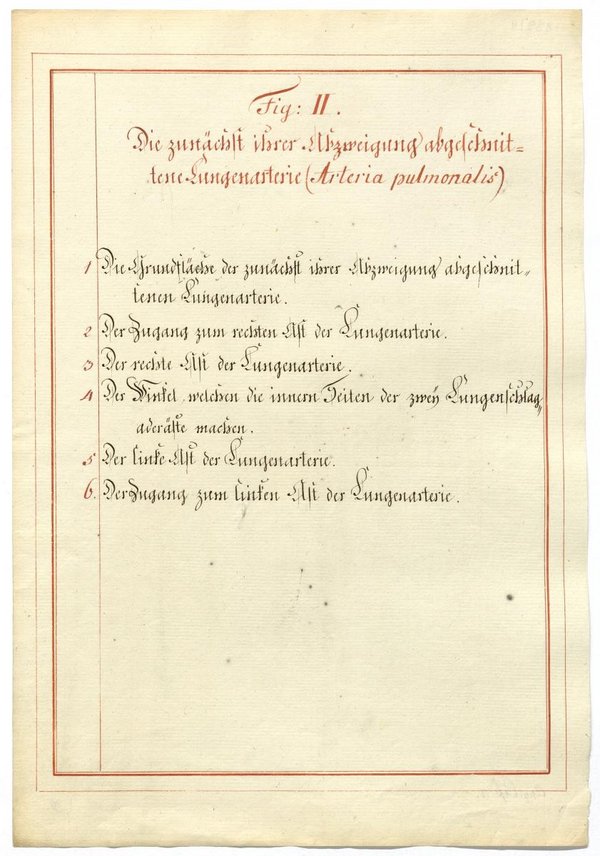 Fig: II.
Die zunächst ihrer Abzweigung abgeschnit=
tene Lungenarterie (Arteria pulmonalis)
1 Die Grundfläche der zunächst ihrer Abzweigung abgeschnit=
tenen Lungenarterie.
2 Der Zugang zum rechten Ast der Lungenarterie.
3 Der rechte Ast der Lungenarterie.
4 Der Winkel, welchen die innern Seiten der zwey Lungenschlag=
aderäste machen.
5 Der linke Ast der Lungenarterie.
6. Der Zugang zum linken Ast der Lungenarterie.